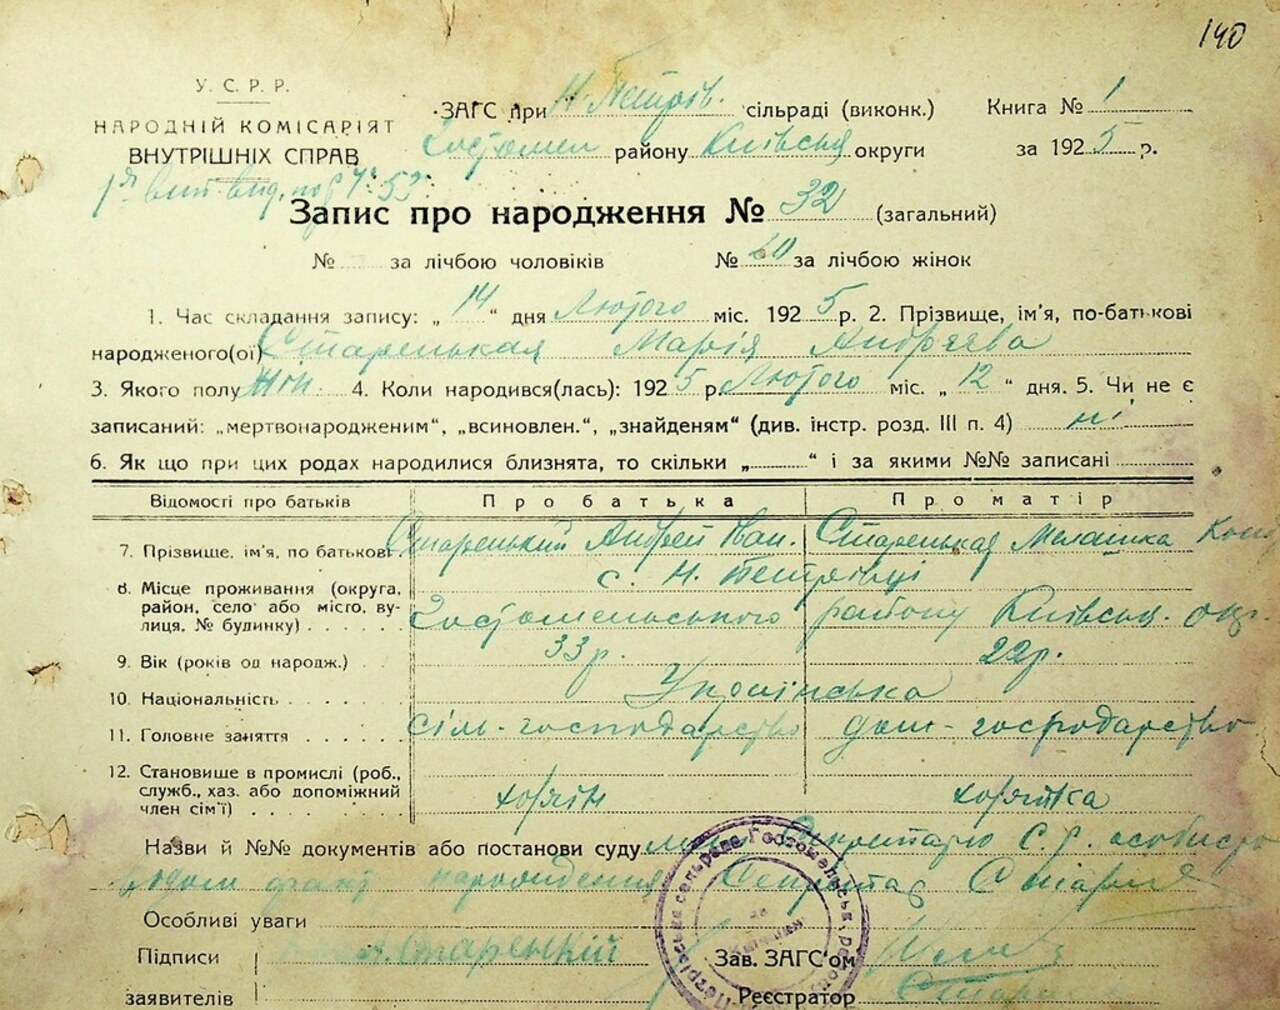 140
У. С. Р. Р.
НАРОДНІЙ КОМІСАРІЯТ
ВНУТРІШНІХ СПРАВ
ЗАГС при Н. Петрів. сільраді (виконк.) Книга № 1
Гостомел району Київськ округи за 1925 р.
Запис про народження № 32 (загальний)
№ за лічбою чоловіків № 20 за лічбою жінок
1. Час складання запису: „ 14 “ дня Лютого міс. 1925 р. 2. Прізвище, ім'я, по-батькові
народженого(ої) Старенькая Марія Андрєева
3. Якого полу жін. 4. Коли народився(лась): 1925 р. Лютого міс. „ 12 “ дня. 5. Чи не є
записаний: „мертвонародженим“, „всиновлен.“, „знайденям“ (див. інстр. розд. III п. 4) ні
6. Як що при цих родах народилися близнята, то скільки „ “ і за якими №№ записані
Відомості про батьків Про батька Про матір
7. Прізвище, ім'я, по батькові Старенький Андрей Иван. Старенькая Мелашка
с. Н. Петрівці
8. Місце проживання (округа,
район, село або місто, ву-
лиця, № будинку) Гостомельського району Київськ. окр.
9. Вік (років од народж.) 33 р. 22 р.
10. Національність Українська
11. Головне заняття сіль-господарство дом-господарство
12. Становище в промислі (роб.,
служб., хаз. або допоміжний
член сім'ї) хозяін хозяйка
Назви й №№ документів або постанови суду Секретарю С. Р. особисто
народження Секретар
Особливі уваги
Підписи А. Старенкій Зав. ЗАГС'ом
заявителів Реєстратор